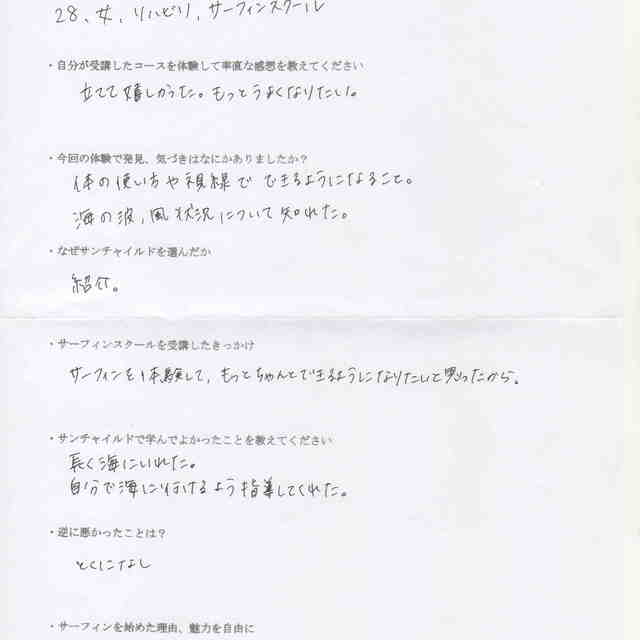 28、女、リハビリ、サーフィンスクール
・自分が受講したコースを体験して率直な感想を教えてください
立てて嬉しかった。もっとうまくなりたい。
・今回の体験で発見、気づきはなにかありましたか？
体の使い方や視線で できるようになること。
海の波、風状況について知れた。
・なぜサンチャイルドを選んだか
紹介。
・サーフィンスクールを受講したきっかけ
サーフィンを体験して、もっとちゃんとできるようになりたいと思ったから。
・サンチャイルドで学んでよかったことを教えてください
長く海にいれた。
自分で海に行けるよう指導してくれた。
・逆に悪かったことは？
とくになし
・サーフィンを始めた理由、魅力を自由に